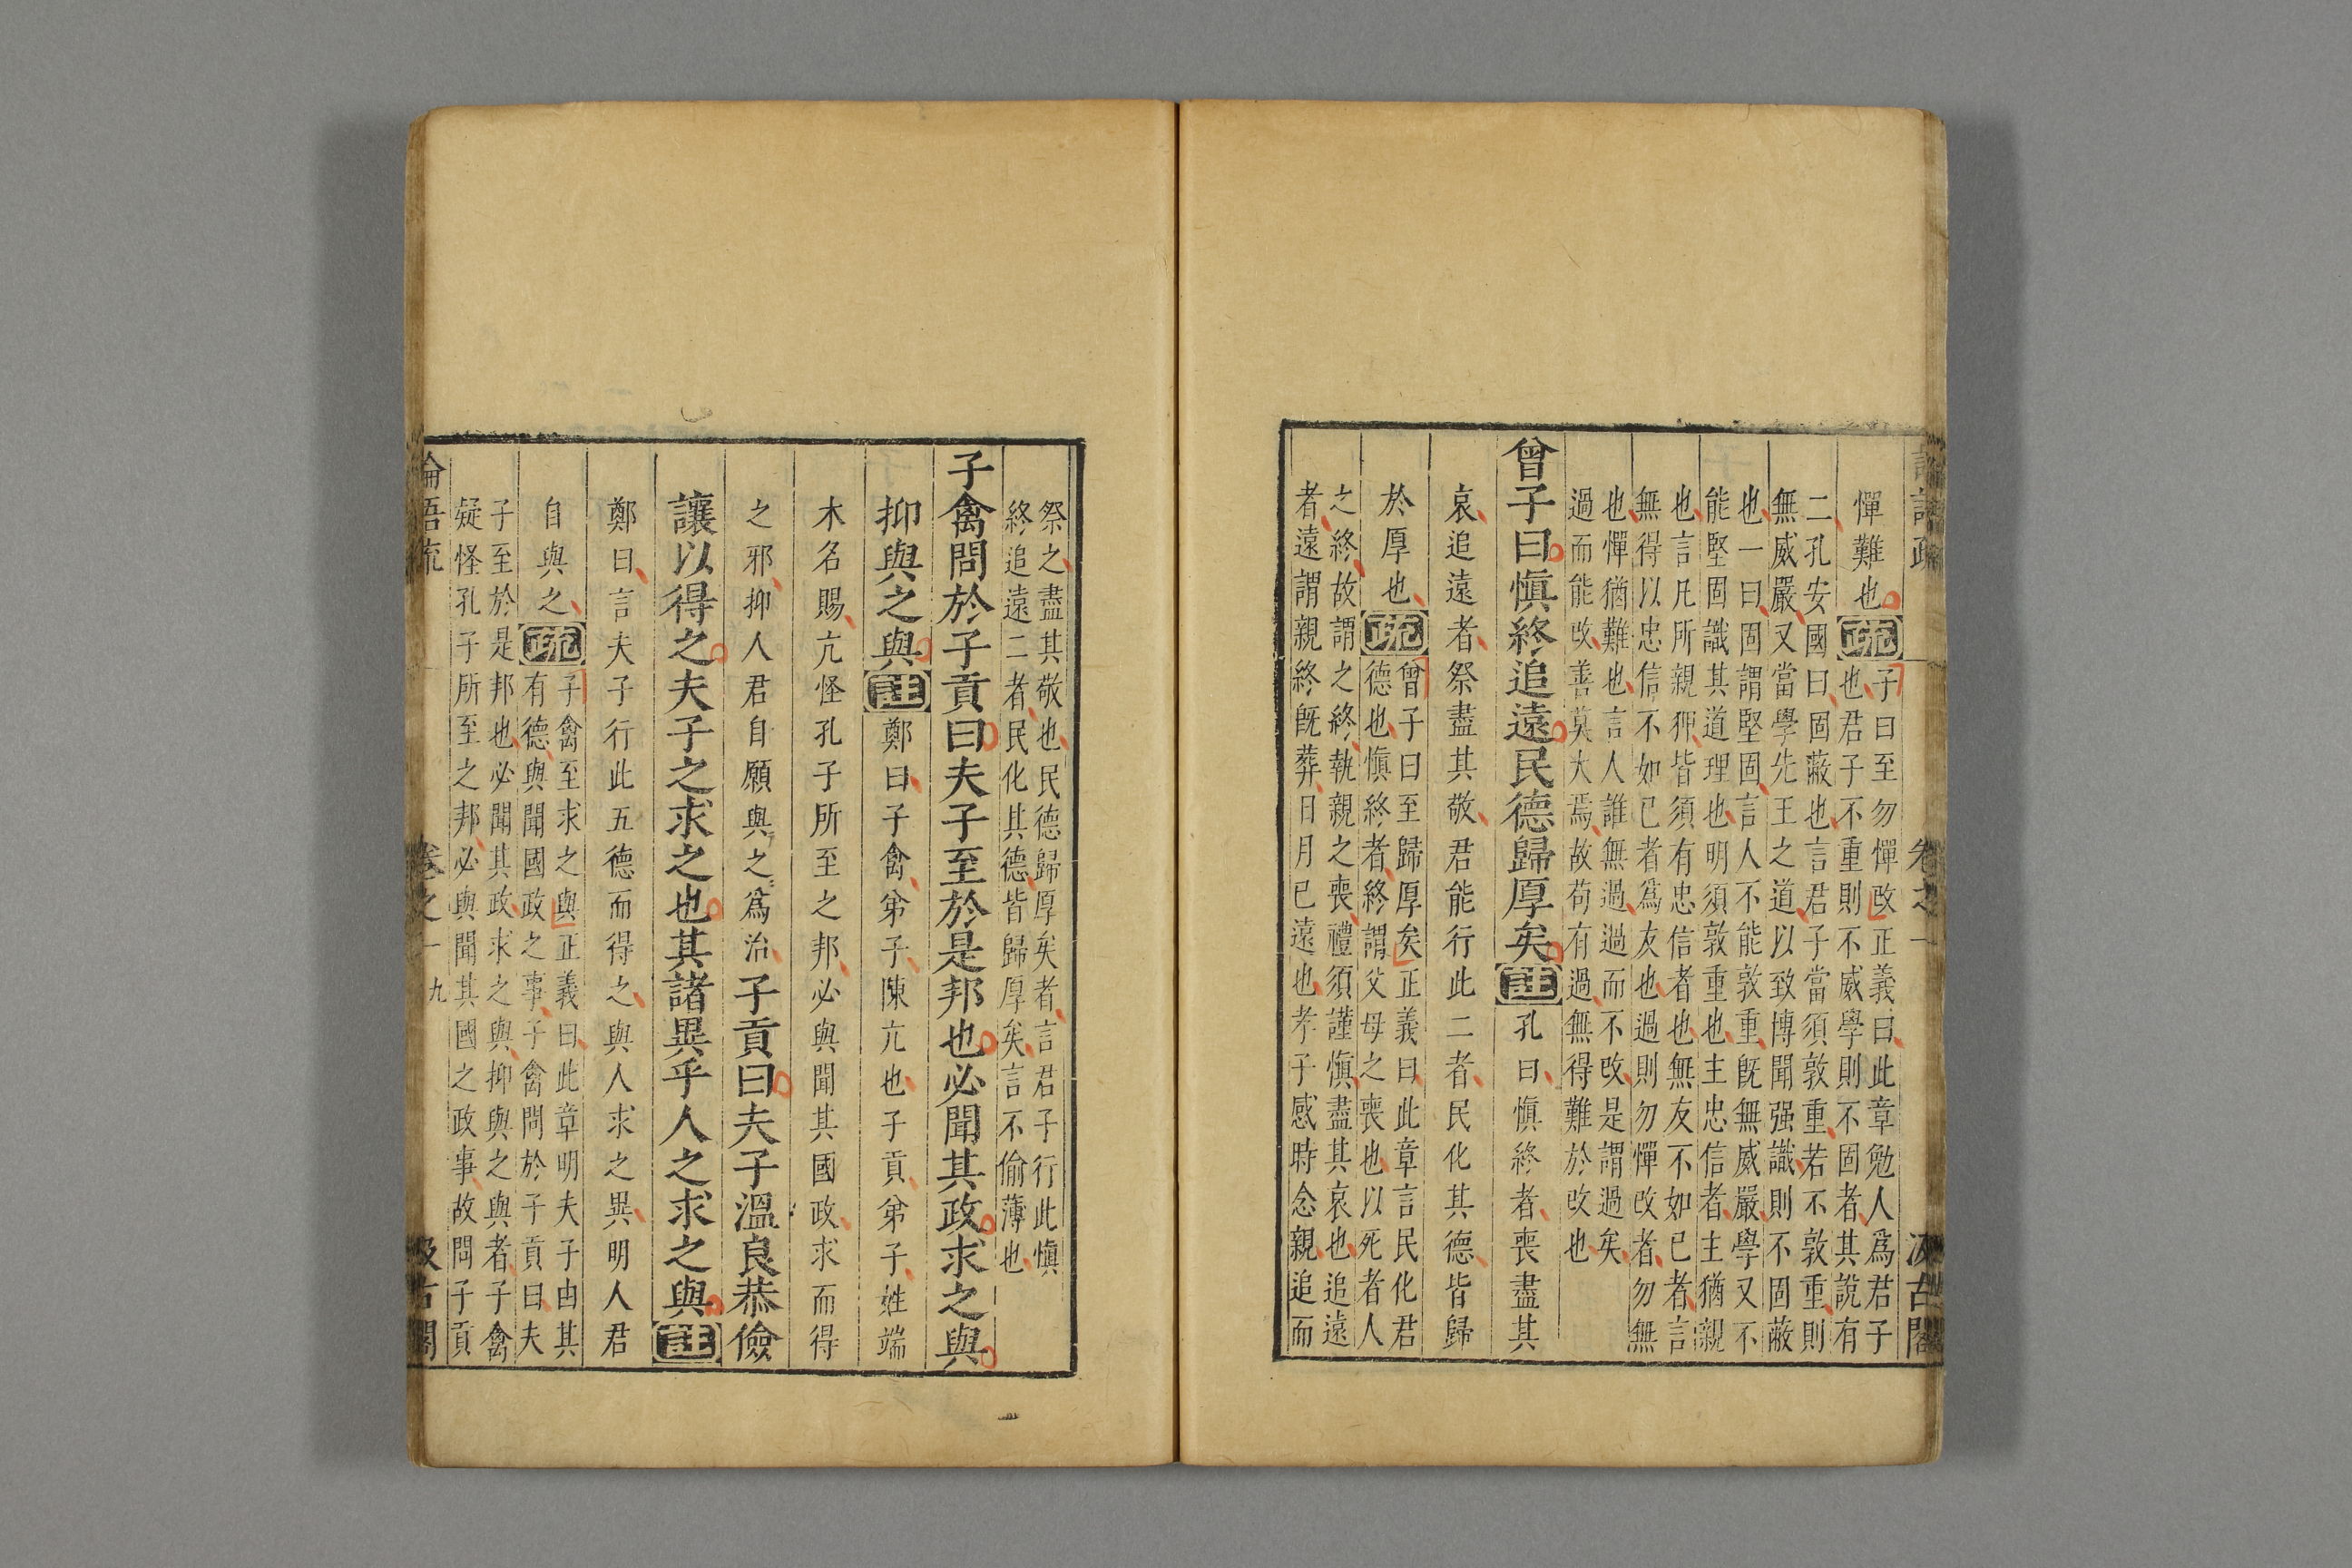 論語疏 卷之一 汲古閣
憚難也疏子曰至勿憚改正義曰此章勉人爲君子
也君子不重則不威學則不固者其說有
二孔安國曰固蔽也言君子當須敦重若不敦重則
無威嚴又當學先王之道以致博聞强識則不固蔽
也一曰固謂堅固言人不能敦重旣無威嚴學又不
能堅固識其道理也明須敦重也主忠信者主猶親
也言凡所親狎皆須有忠信者也無友不如已者言
無得以忠信不如已者爲友也過則勿憚改者勿無
也憚猶難也言人誰無過過而不改是謂過矣
過而能改善莫大焉故苟有過無得難於改也
曾子曰愼終追遠民德歸厚矣註孔曰愼終者喪盡其
哀追遠者祭盡其敬君能行此二者民化其德皆歸
於厚也疏曾子曰至歸厚矣正義曰此章言民化君
德也愼終者終謂父母之喪也以死者人
之終故謂之終執親之喪禮須謹愼盡其哀也追遠
者遠謂親終旣葬日月已遠也孝子感時念親追而
祭之盡其敬也民德歸厚矣者言君子行此愼
終追遠二者民化其德皆歸厚矣言不偷薄也
子禽問於子貢曰夫子至於是邦也必聞其政求之與
抑與之與註鄭曰子禽弟子陳亢也子貢弟子姓端
木名賜亢怪孔子所至之邦必與聞其國政求而得
之邪抑人君自願與之爲治子貢曰夫子溫良恭儉
讓以得之夫子之求之也其諸異乎人之求之與註
鄭曰言夫子行此五德而得之與人求之異明人君
自與之疏子禽至求之與正義曰此章明夫子由其
有德與聞國政之事子禽問於子貢曰夫
子至於是邦也必聞其政求之與抑與之與者子禽
疑怪孔子所至之邦必與聞其國之政事故問子貢
論語疏 卷之一 九 汲古閣